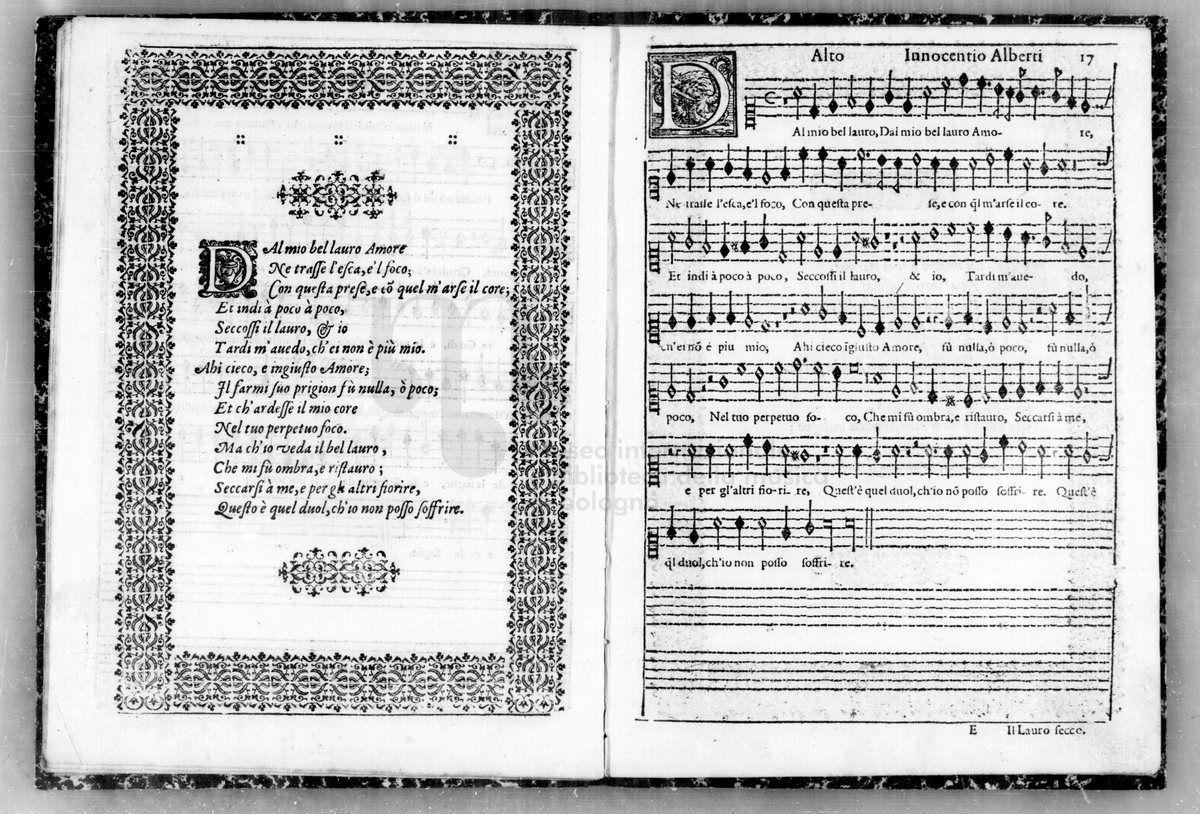 DAl mio bel lauro Amore
Ne trasse l'esca, e'l foco;
Con questa prese, e cõ quel m'arse il core;
Et indi à poco à poco,
Seccossi il lauro, & io
Tardi m'auedo, ch'ei non è più mio.
Ahi cieco, e ingiusto Amore;
Il farmi suo prigion fù nulla, ò poco;
Et ch'ardesse il mio core
Nel tuo perpetuo foco.
Ma ch'io veda il bel lauro,
Che mi fù ombra, e ristauro;
Seccarsi à me, e per gli altri fiorire,
Questo è quel duol, ch'io non posso soffrire.
Alto Innocentio Alberti 17
DAl mio bel lauro, Dal mio bel lauro Amo- re,
Ne trasse l'esca, e'l foco, Con questa pre- se, e con q̃l m'arse il co- re.
Et indi à poco à poco, Seccossi il lauro, & io, Tardi m'aue- do,
ch'ei nõ è piu mio, Ahi cieco ĩgiusto Amore, fù nulla, ò poco, fù nulla, ò
poco, Nel tuo perpetuo fo- co, Che mi fù ombra, e ristauto, Seccarsi à me,
e per gl'altri fio-ri- re, Quest'è quel duol, ch'io nõ posso soffri- re. Quest'è
q̃l duol, ch'io non posso soffri- re.
E Il Lauro secco.
museo internazionale
biblioteca della musica
bologna